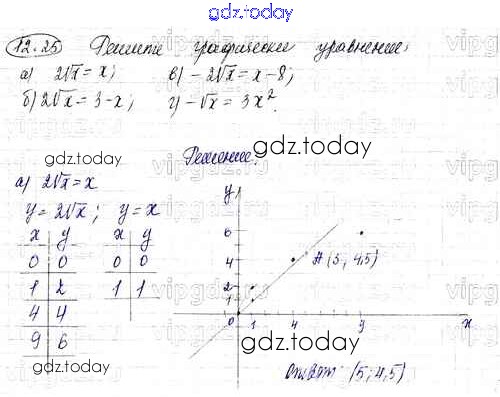 gdz.today
12.25 Решите графически уравнение:
а) 2√x = x; в) -2√x = x-8;
б) 2√x = 3-x; г) -√x = 3x².
gdz.today
Решение:
gdz.today
а) 2√x = x
y = 2√x; y = x
x y x y
0 0 0 0
1 2 1 1
4 4
9 6
y
6
4
2
1
0 1 4 9 x
A (5; 4,5)
gdz.today
gdz.today
Ответ: (5; 4,5)